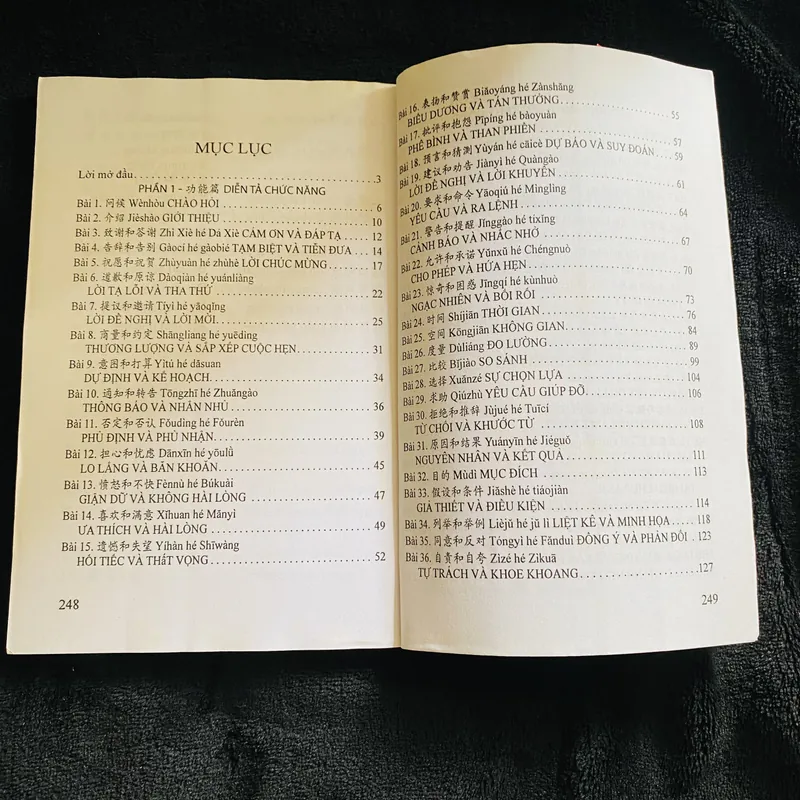 MỤC LỤC
Lời mở đầu............3
PHẦN 1 - 功能篇 DIỄN TẢ CHỨC NĂNG
Bài 1. 问候 Wènhòu CHÀO HỎI............6
Bài 2. 介绍 Jièshào GIỚI THIỆU............10
Bài 3. 致谢和答谢 Zhì Xiè hé Dá Xiè CẢM ƠN VÀ ĐÁP TẠ....12
Bài 4. 告辞和告别 Gàocí hé gàobié TẠM BIỆT VÀ TIỄN ĐƯA....14
Bài 5. 祝愿和祝贺 Zhùyuàn hé zhùhè LỜI CHÚC MỪNG........17
Bài 6. 道歉和原谅 Dàoqiàn hé yuánliàng
LỜI TẠ LỖI VÀ THA THỨ............22
Bài 7. 提议和邀请 Tíyì hé yāoqǐng
LỜI ĐỀ NGHỊ VÀ LỜI MỜI............25
Bài 8. 商量和约定 Shāngliang hé yuēdìng
THƯƠNG LƯỢNG VÀ SẮP XẾP CUỘC HẸN............31
Bài 9. 意图和打算 Yìtú hé dǎsuan
DỰ ĐỊNH VÀ KẾ HOẠCH............34
Bài 10. 通知和转告 Tōngzhī hé Zhuǎngào
THÔNG BÁO VÀ NHẮN NHỦ............36
Bài 11. 否定和否认 Fǒudìng hé Fǒurèn
PHỦ ĐỊNH VÀ PHỦ NHẬN............39
Bài 12. 担心和忧虑 Dānxīn hé yōulǜ
LO LẮNG VÀ BĂN KHOĂN............45
Bài 13. 愤怒和不快 Fènnù hé Búkuài
GIẬN DỮ VÀ KHÔNG HÀI LÒNG............47
Bài 14. 喜欢和满意 Xǐhuan hé Mǎnyì
ƯA THÍCH VÀ HÀI LÒNG............49
Bài 15. 遗憾和失望 Yíhàn hé Shīwàng
HỐI TIẾC VÀ THẤT VỌNG............52
248
Bài 16. 表扬和赞赏 Biǎoyáng hé Zànshǎng
BIỂU DƯƠNG VÀ TÁN THƯỞNG............55
Bài 17. 批评和抱怨 Pīpíng hé bàoyuàn
PHÊ BÌNH VÀ THAN PHIỀN............57
Bài 18. 预言和猜测 Yùyán hé cāicè DỰ BÁO VÀ SUY ĐOÁN....59
Bài 19. 建议和劝告 Jiànyì hé Quàngào
LỜI ĐỀ NGHỊ VÀ LỜI KHUYÊN............61
Bài 20. 要求和命令 Yāoqiú hé Mìnglìng
YÊU CẦU VÀ RA LỆNH............64
Bài 21. 警告和提醒 Jǐnggào hé tíxǐng
CẢNH BÁO VÀ NHẮC NHỞ............67
Bài 22. 允许和承诺 Yǔnxǔ hé Chéngnuò
CHO PHÉP VÀ HỨA HẸN............70
Bài 23. 惊奇和困惑 Jīngqí hé kùnhuò
NGẠC NHIÊN VÀ BỐI RỐI............73
Bài 24. 时间 Shíjiān THỜI GIAN............76
Bài 25. 空间 Kōngjiān KHÔNG GIAN............84
Bài 26. 度量 Dùliàng ĐO LƯỜNG............89
Bài 27. 比较 Bǐjiào SO SÁNH............99
Bài 28. 选择 Xuǎnzé SỰ CHỌN LỰA............104
Bài 29. 求助 Qiúzhù YÊU CẦU GIÚP ĐỠ............106
Bài 30. 拒绝和推辞 Jùjué hé Tuīcí
TỪ CHỐI VÀ KHƯỚC TỪ............108
Bài 31. 原因和结果 Yuányīn hé Jiéguǒ
NGUYÊN NHÂN VÀ KẾT QUẢ............111
Bài 32. 目的 Mùdì MỤC ĐÍCH............113
Bài 33. 假设和条件 Jiǎshè hé tiáojiàn
GIẢ THIẾT VÀ ĐIỀU KIỆN............114
Bài 34. 列举和举例 Lièjǔ hé jǔ lì LIỆT KÊ VÀ MINH HỌA....118
Bài 35. 同意和反对 Tóngyì hé Fǎnduì ĐỒNG Ý VÀ PHẢN ĐỐI..123
Bài 36. 自责和自夸 Zìzé hé Zìkuā
TỰ TRÁCH VÀ KHOE KHOANG............127
249